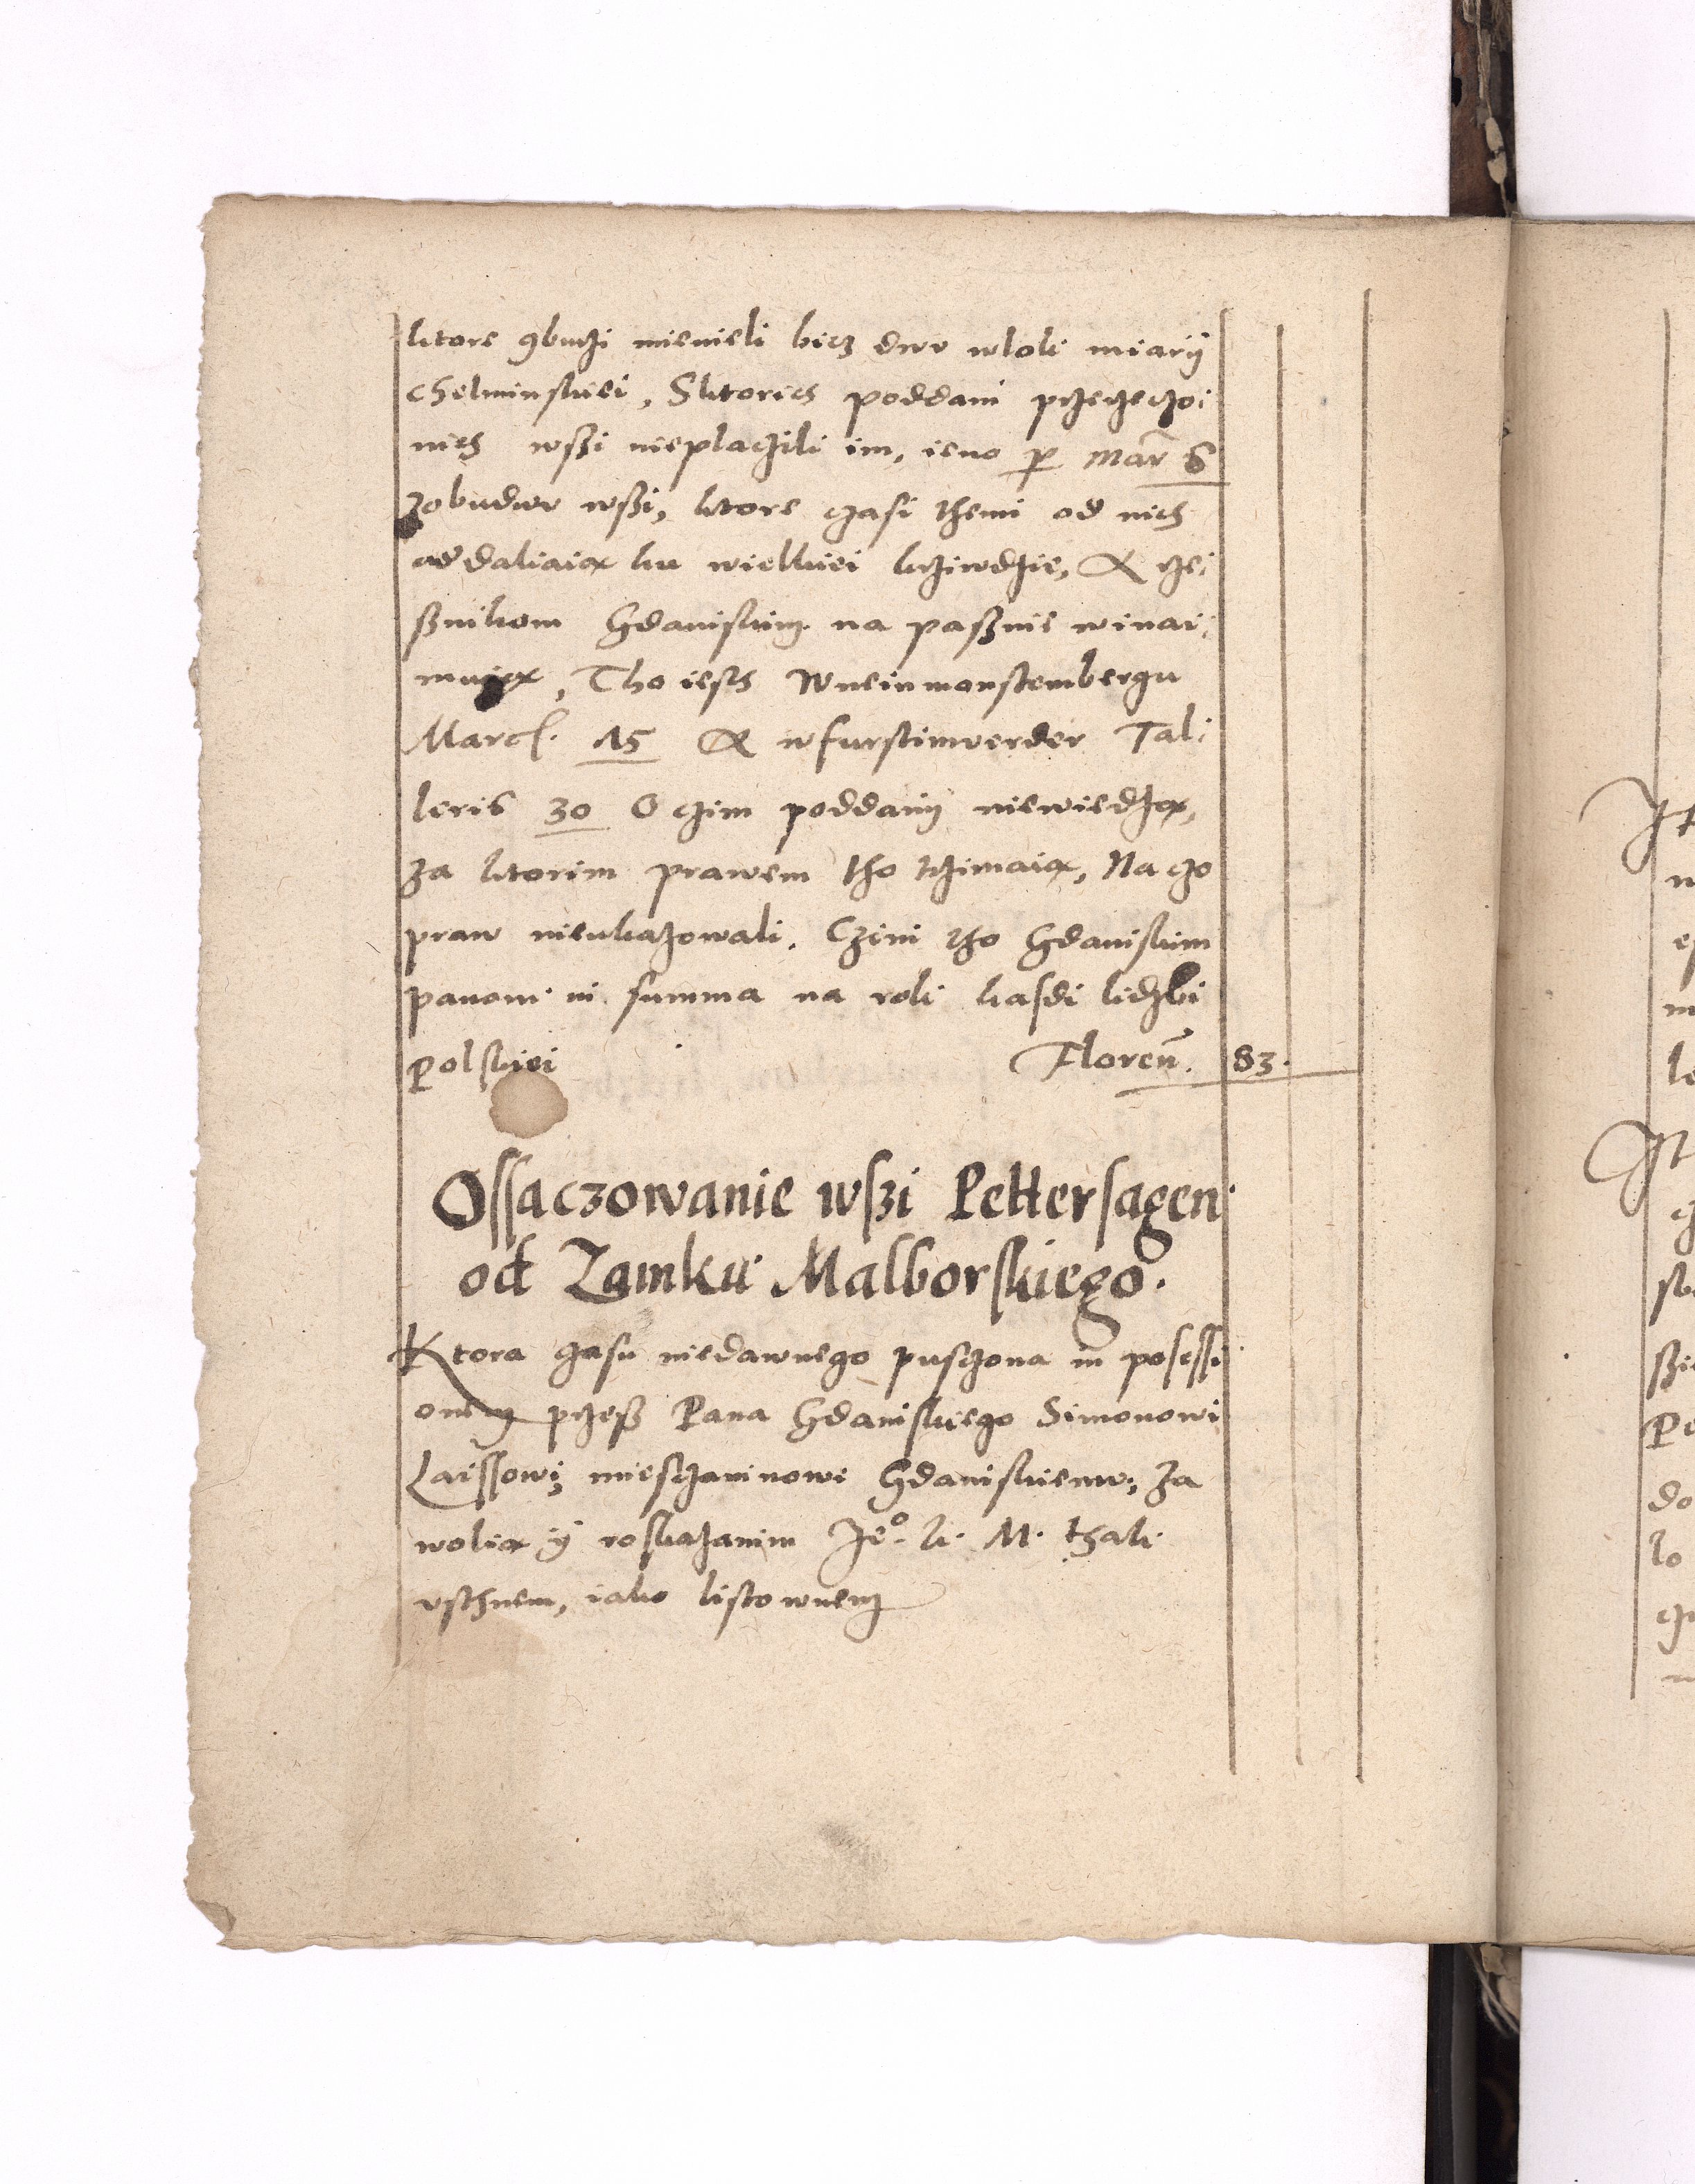 ktore obudzi mienieli bicz dwv wloki miarÿ
chelminskiei, S ktorich poddani przeszo:
nich wszi nieplaczili im, ieno per Mar 6
zobudwv wszi, ktore czasi themi od nich
oddaliaią ku wielkiei krziwdzie, A rze:
sznikom Gdaniskim na pasznie winai:
muią, Tho iesth W neinmonstembergu
March. 15 A w furstinwerder Tal:
leris 30 O czim poddanj niewiedzą,
za ktorim prawem tho trzimaią, Na czo
praw nieukazowali. Czini tho Gdaniskim
panom in summa na roli kasdi liczbi
Polskiei Floren. 83.
Ossaczowanie wszi Pettershagen
od Zamku Malborskiego.
Ktora czasu niedawnego pusczona in posessi
onem przesz Pana Gdaniskiego Simonowi
Laissowi, miesczaninowi Gdaniskiemv, za
wolią ÿ roskazanim Jeo. K. M. thak
vsthnem, iako listownem